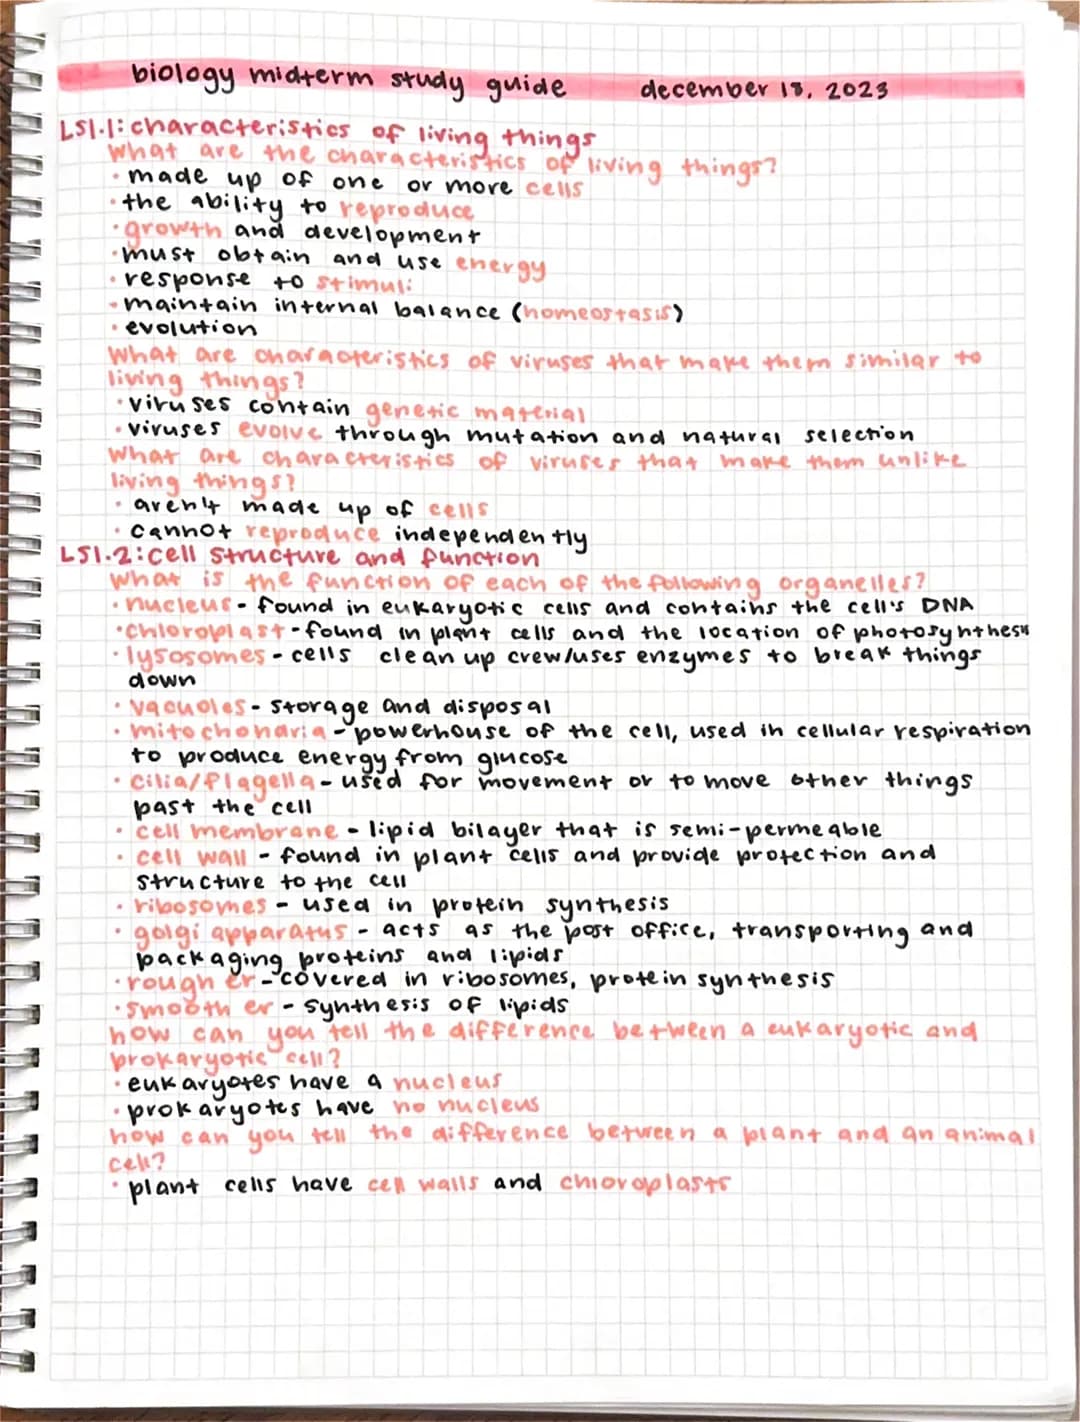 biology midterm study guide december 18, 2023
LS1.1: characteristics of living things
what are the characteristics of living things?
· made up of one or more cells
· the ability to reproduce
· growth and development
· must obtain and use energy
· response to stimuli
· maintain internal balance (homeostasis)
· evolution
what are characteristics of viruses that make them similar to
living things?
· viruses contain genetic material
· viruses evolve through mutation and natural selection
what are characteristics of viruses that make them unlike
living things?
· aren't made up of cells
· cannot reproduce independently
LS1.2: cell structure and function
what is the function of each of the following organelles?
· nucleus - found in eukaryotic cells and contains the cell's DNA
· chloroplast - found in plant cells and the location of photosynthesis
· lysosomes - cells clean up crew/uses enzymes to break things
down
· vacuoles - storage and disposal
· mitochondria - powerhouse of the cell, used in cellular respiration
to produce energy from glucose
· cilia/flagella - used for movement or to move other things
past the cell
· cell membrane - lipid bilayer that is semi-permeable
· cell wall - found in plant cells and provide protection and
structure to the cell
· ribosomes - used in protein synthesis
· golgi apparatus - acts as the post office, transporting and
packaging proteins and lipids
· rough er - covered in ribosomes, protein synthesis
· smooth er - synthesis of lipids
how can you tell the difference between a eukaryotic and
prokaryotic cell?
· eukaryotes have a nucleus
· prokaryotes have no nucleus
how can you tell the difference between a plant and an animal
cell?
· plant cells have cell walls and chloroplasts